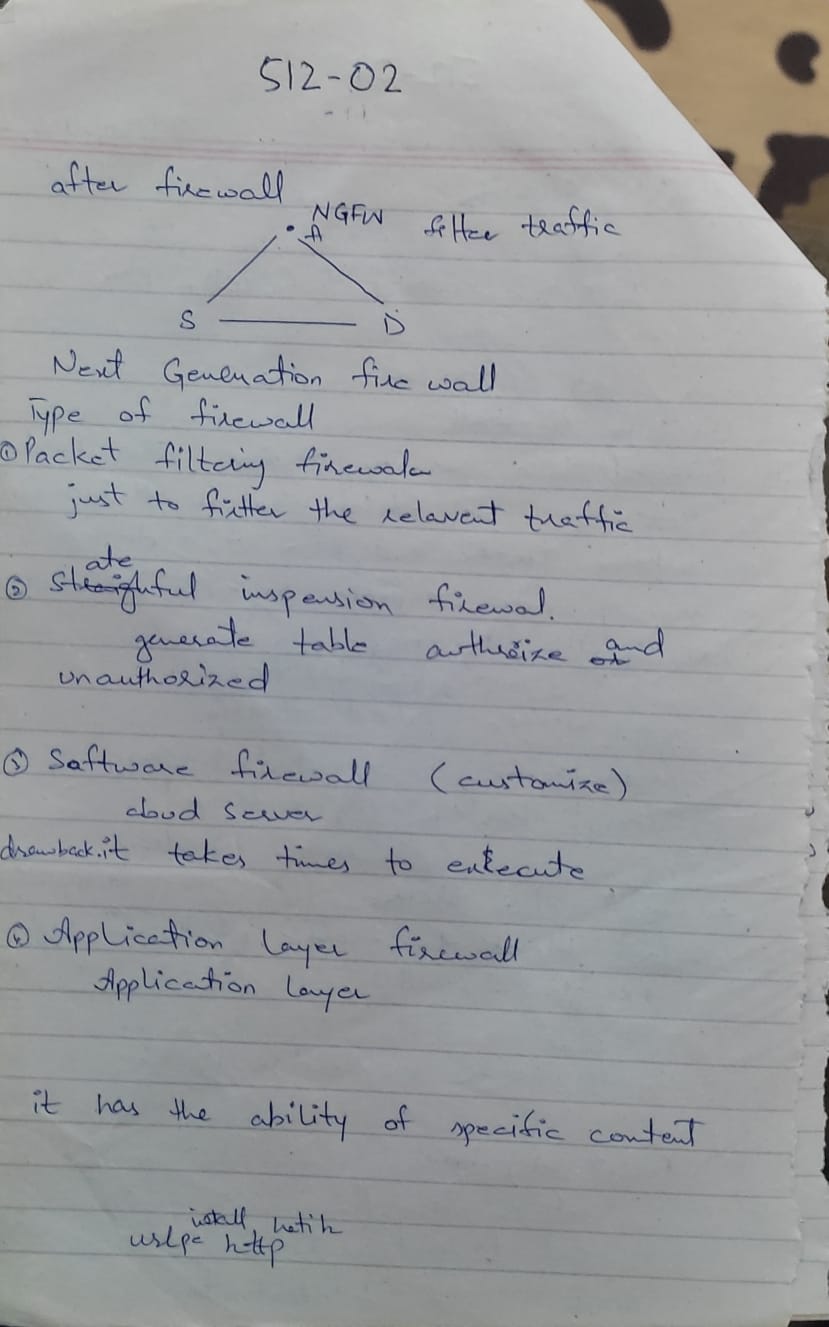 512-02
after firewall
NGFW filter traffic
A
S D
Next Generation fire wall
Type of firewall
① Packet filtering firewale
just to fitter the relavent traffic
ate
② Straighful inspension firewal.
generate table authroize and
unauthorized
③ Software firewall (customize)
cloud server
drawback. it takes times to exkecute
④ Application layer firewall
Application layer
it has the ability of specific content
install
http